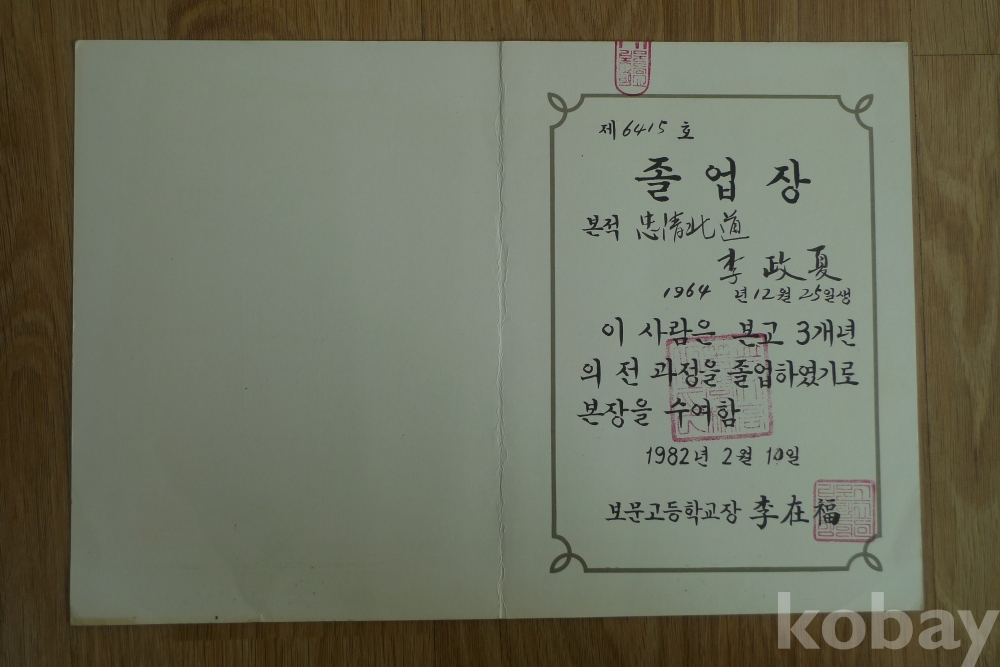 제 6415 호
졸업장
본적 忠淸北道
李政夏
1964년 12월 25일생
이 사람은 본고 3개년
의 전 과정을 졸업하였기로
본장을 수여함
1982년 2월 10일
보문고등학교장 李在福
kobay